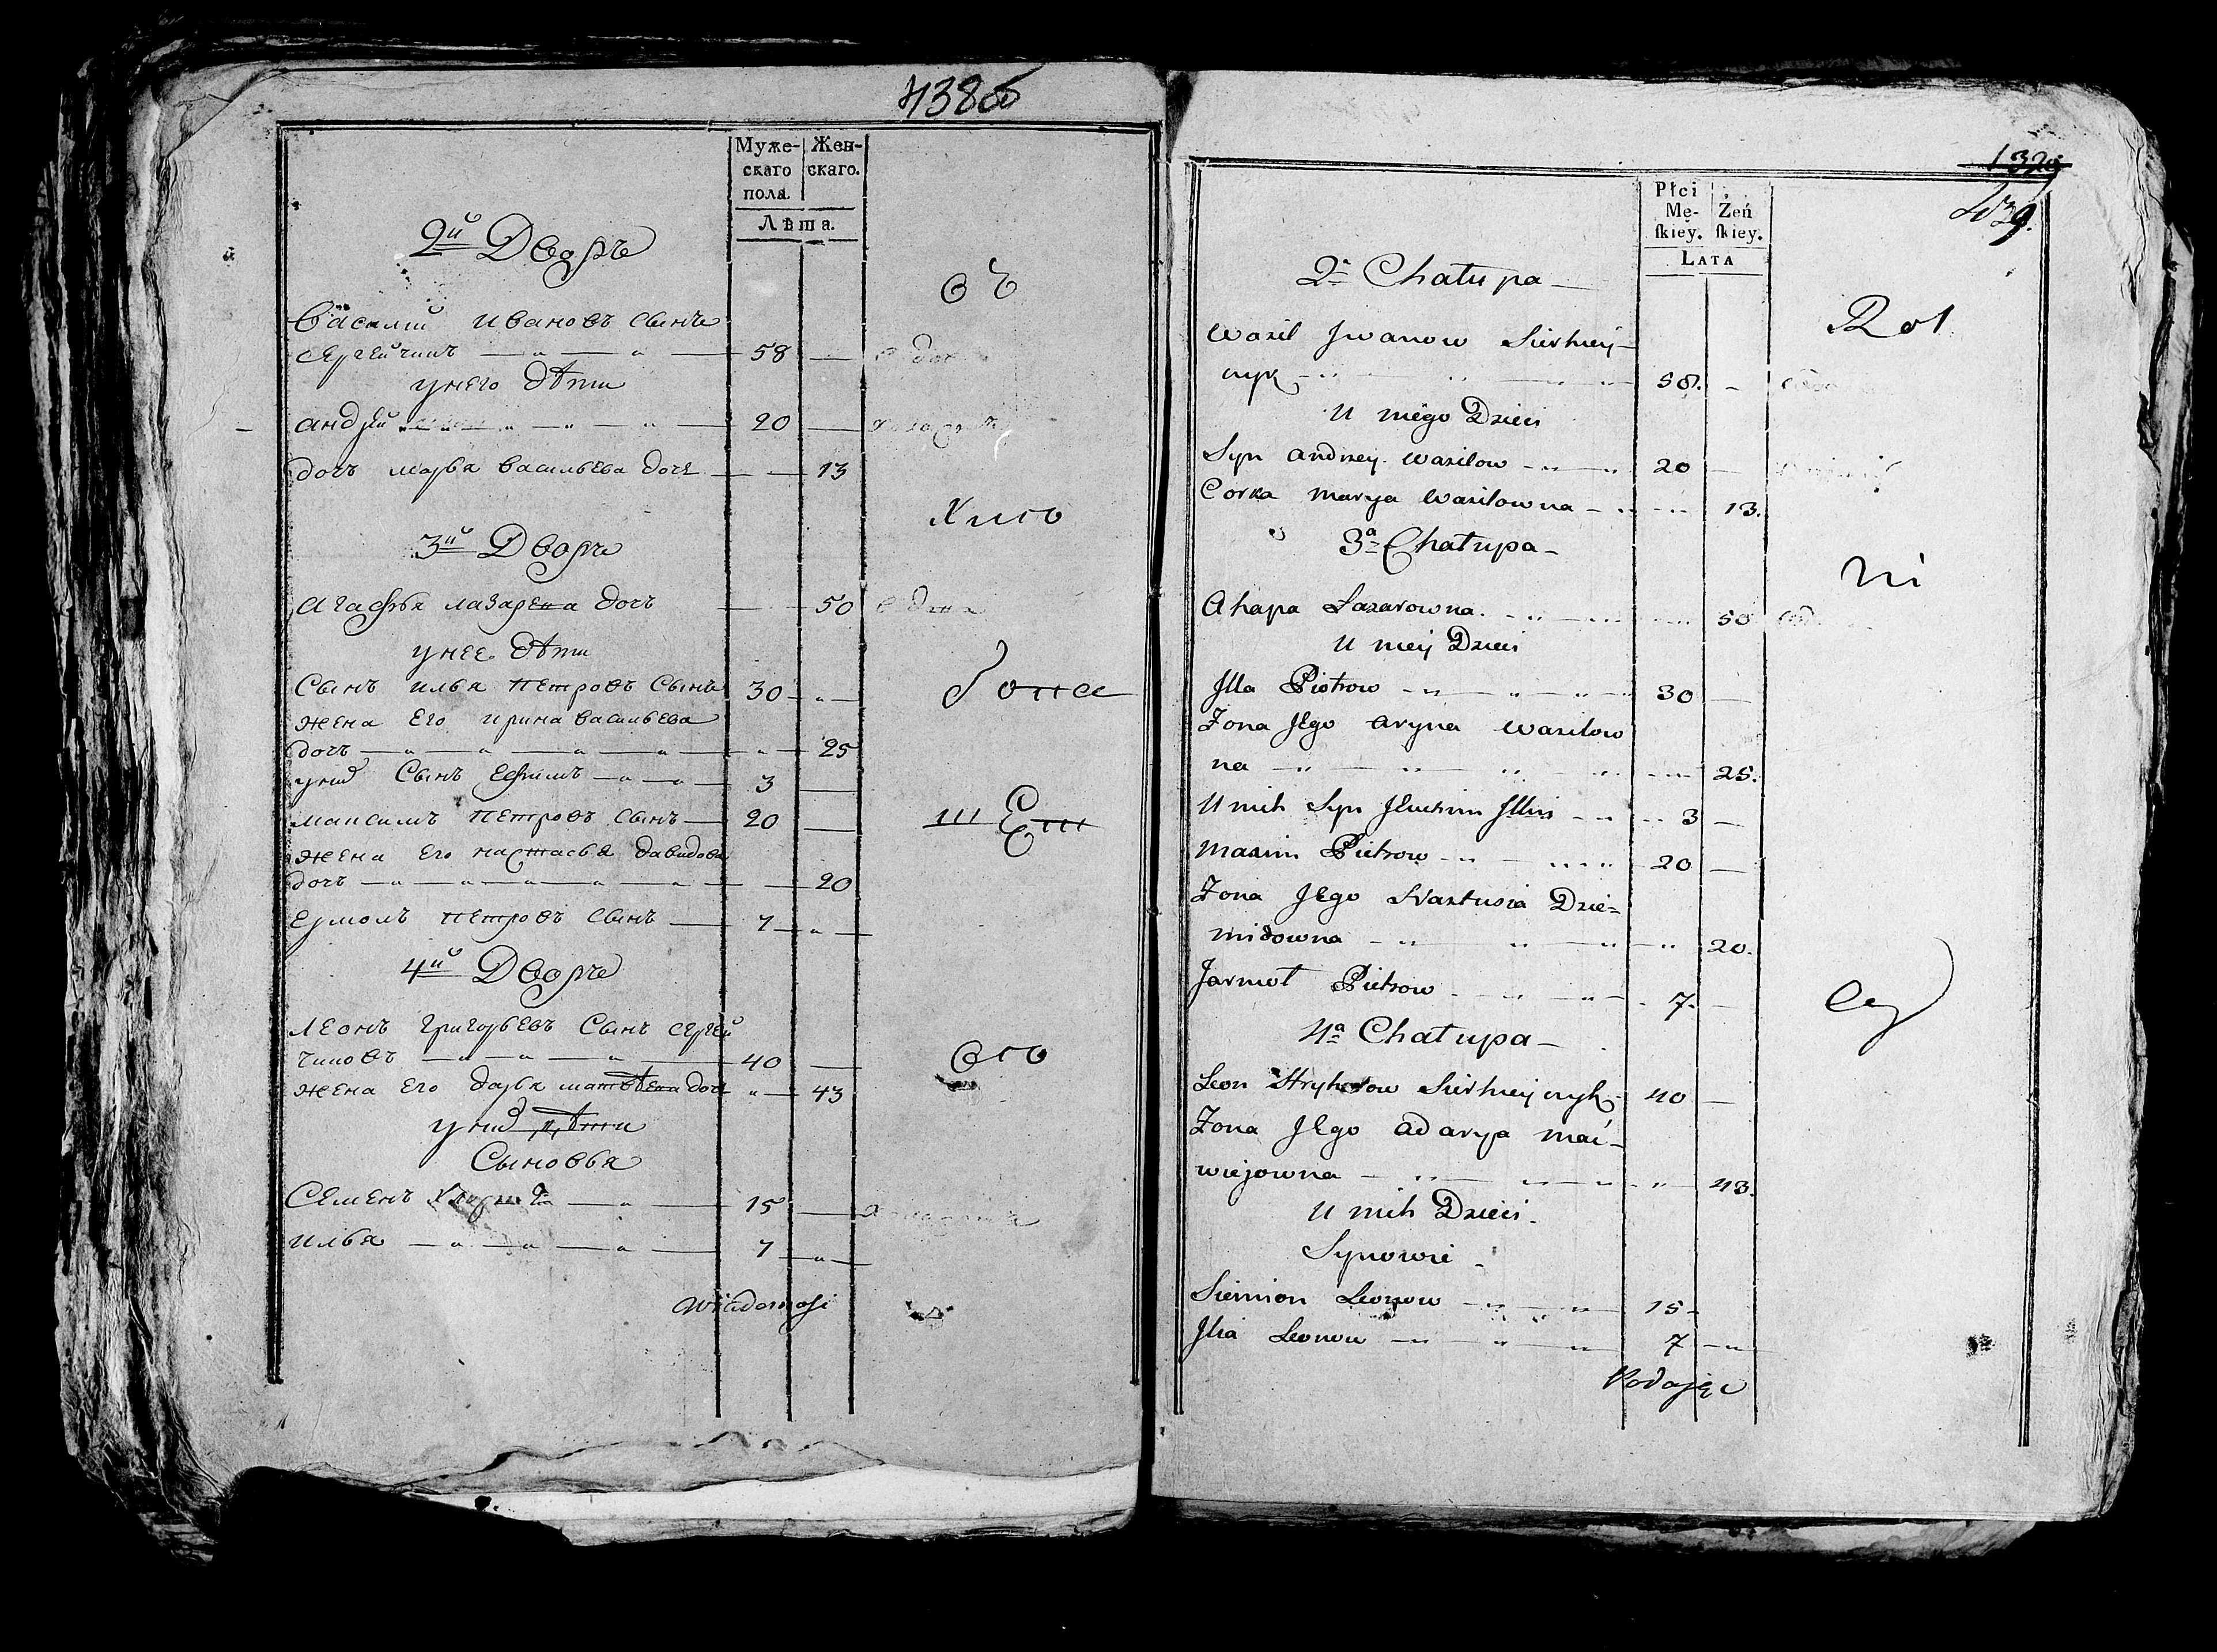 438об
Муже- Жен-
скаго скаго.
пола.
Лѣта.
2й Дворъ
Василий Ивановъ сынъ
Сергейчикъ 58 —
у него дѣти
Андрей 20 —
дочь марья васильева дочь — 13
3й Дворъ
Агафья лазарева дочь — 50
у нее дѣти
Сынъ илья петровъ Сынъ 30 —
жена его ирина васильева
дочь — 25
у них Сынъ Ефимъ 3 —
максимъ петровъ сынъ 20 —
жена его настасья давидова
дочь — 20
Ермолъ петровъ сынъ 7 —
4й Дворъ
Леонъ григорьевъ Сынъ Сергей
чиковъ 40 —
жена его дарья матвѣева дочь — 43
у них дѣти
Сыновья
Семенъ 15 —
илья 7 —
Wiadomosi
съ
хисо
439.
Płci
Mę- Żeń
skiey. skiey.
LATA
2a Chałupa
Wasil Jwanow Sierhiey-
czyk 58. —
U niego Dzieci
Syn Andrzey Wasilow 20 —
Corka Marya Wasilowna 13.
3a Chałupa
Ahapa Łazarowna 50
U niey Dzieci
Jlla Piotrow 30 —
Żona Jego Aryna Wasilow
na 25.
U nich Syn Jeuchim Jllin 3 —
Maxim Pietrow 20 —
Żona Jego Nastusia Dzie-
midowna 20.
Jarmoł Pietrow 7. —
4a Chałupa
Leon Hryhorow Sierhiejczyk 40 —
Żona Jego Adarya Mać-
wiejowna 43.
U nich Dzieci
Synowie
Siemion Leonow 15 -
Jlia Leonow 7 —
Rol
ni
cy